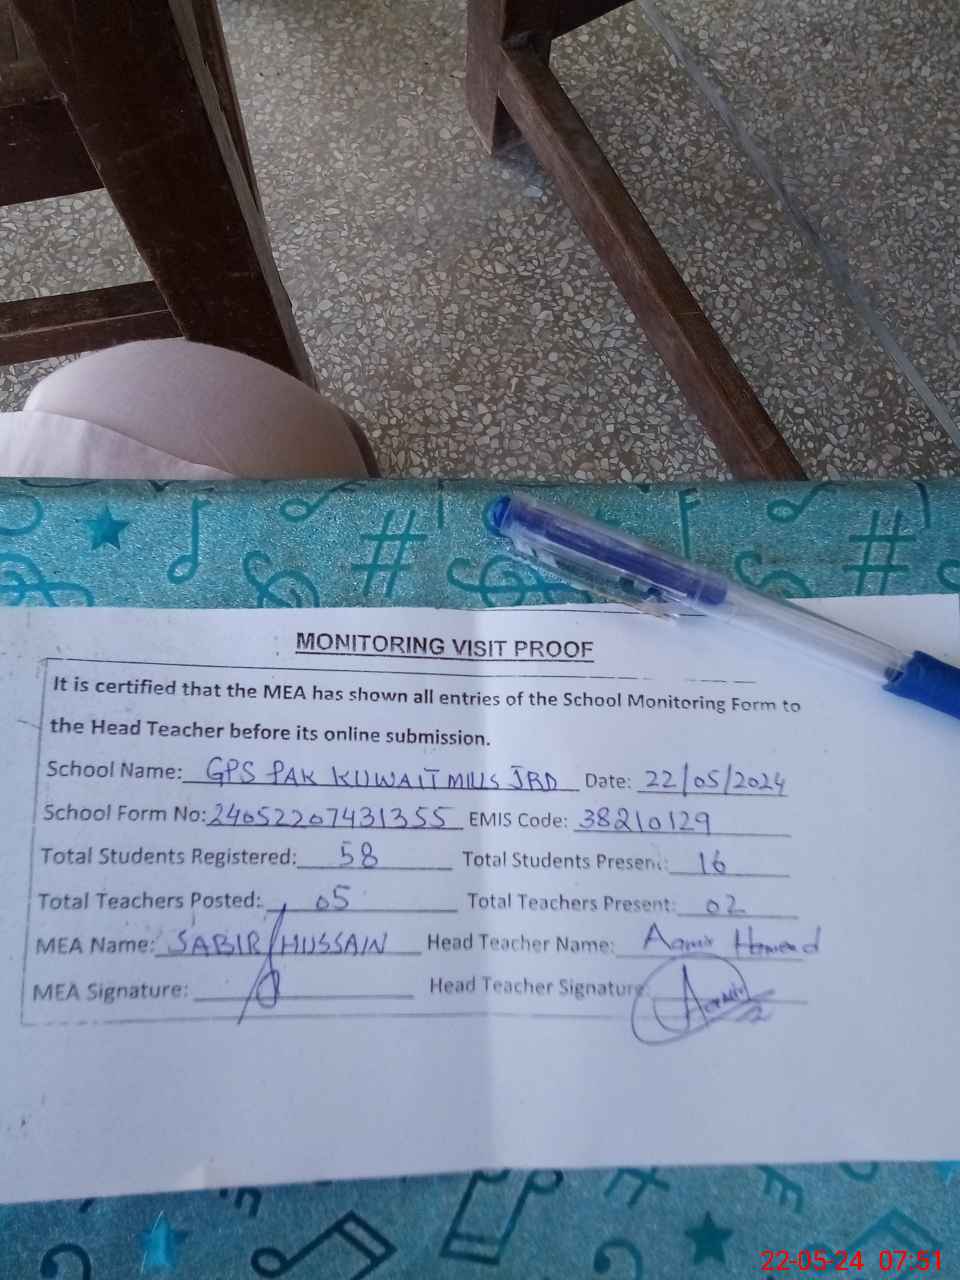 MONITORING VISIT PROOF
It is certified that the MEA has shown all entries of the School Monitoring Form to
the Head Teacher before its online submission.
School Name: GPS PAK KUWAIT MILLS JBD Date: 22/05/2024
School Form No: 24052207431355 EMIS Code: 38210129
Total Students Registered: 58 Total Students Present: 16
Total Teachers Posted: 05 Total Teachers Present: 02
MEA Name: SABIR HUSSAIN Head Teacher Name: Aamir
MEA Signature: Head Teacher Signature: Aamir
22-05-24 07:51